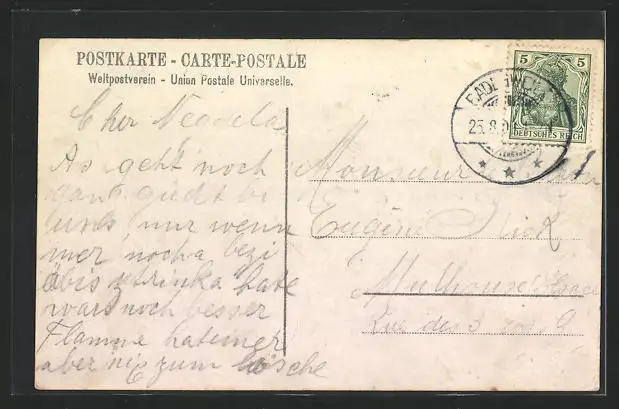 POSTKARTE - CARTE-POSTALE
Weltpostverein - Union Postale Universelle.
5 5
DEUTSCHES REICH
25.8.
Cher
As geht noch
ganz guedt bi
uns, nur wenn
mer noch a bezi
äbis z trinka hate
wars noch besser
Flamme hate mer
aber nix zum lösche
Monsieur
Eugène
Mulhouse
Rue des 3 rois 9